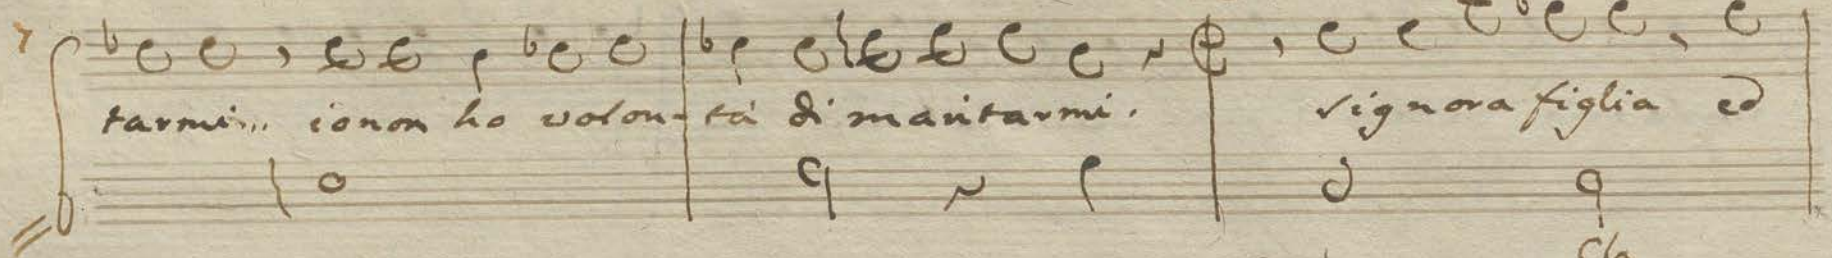 tarmi... io non ho volon- tà di maritarmi. signora figlia ed